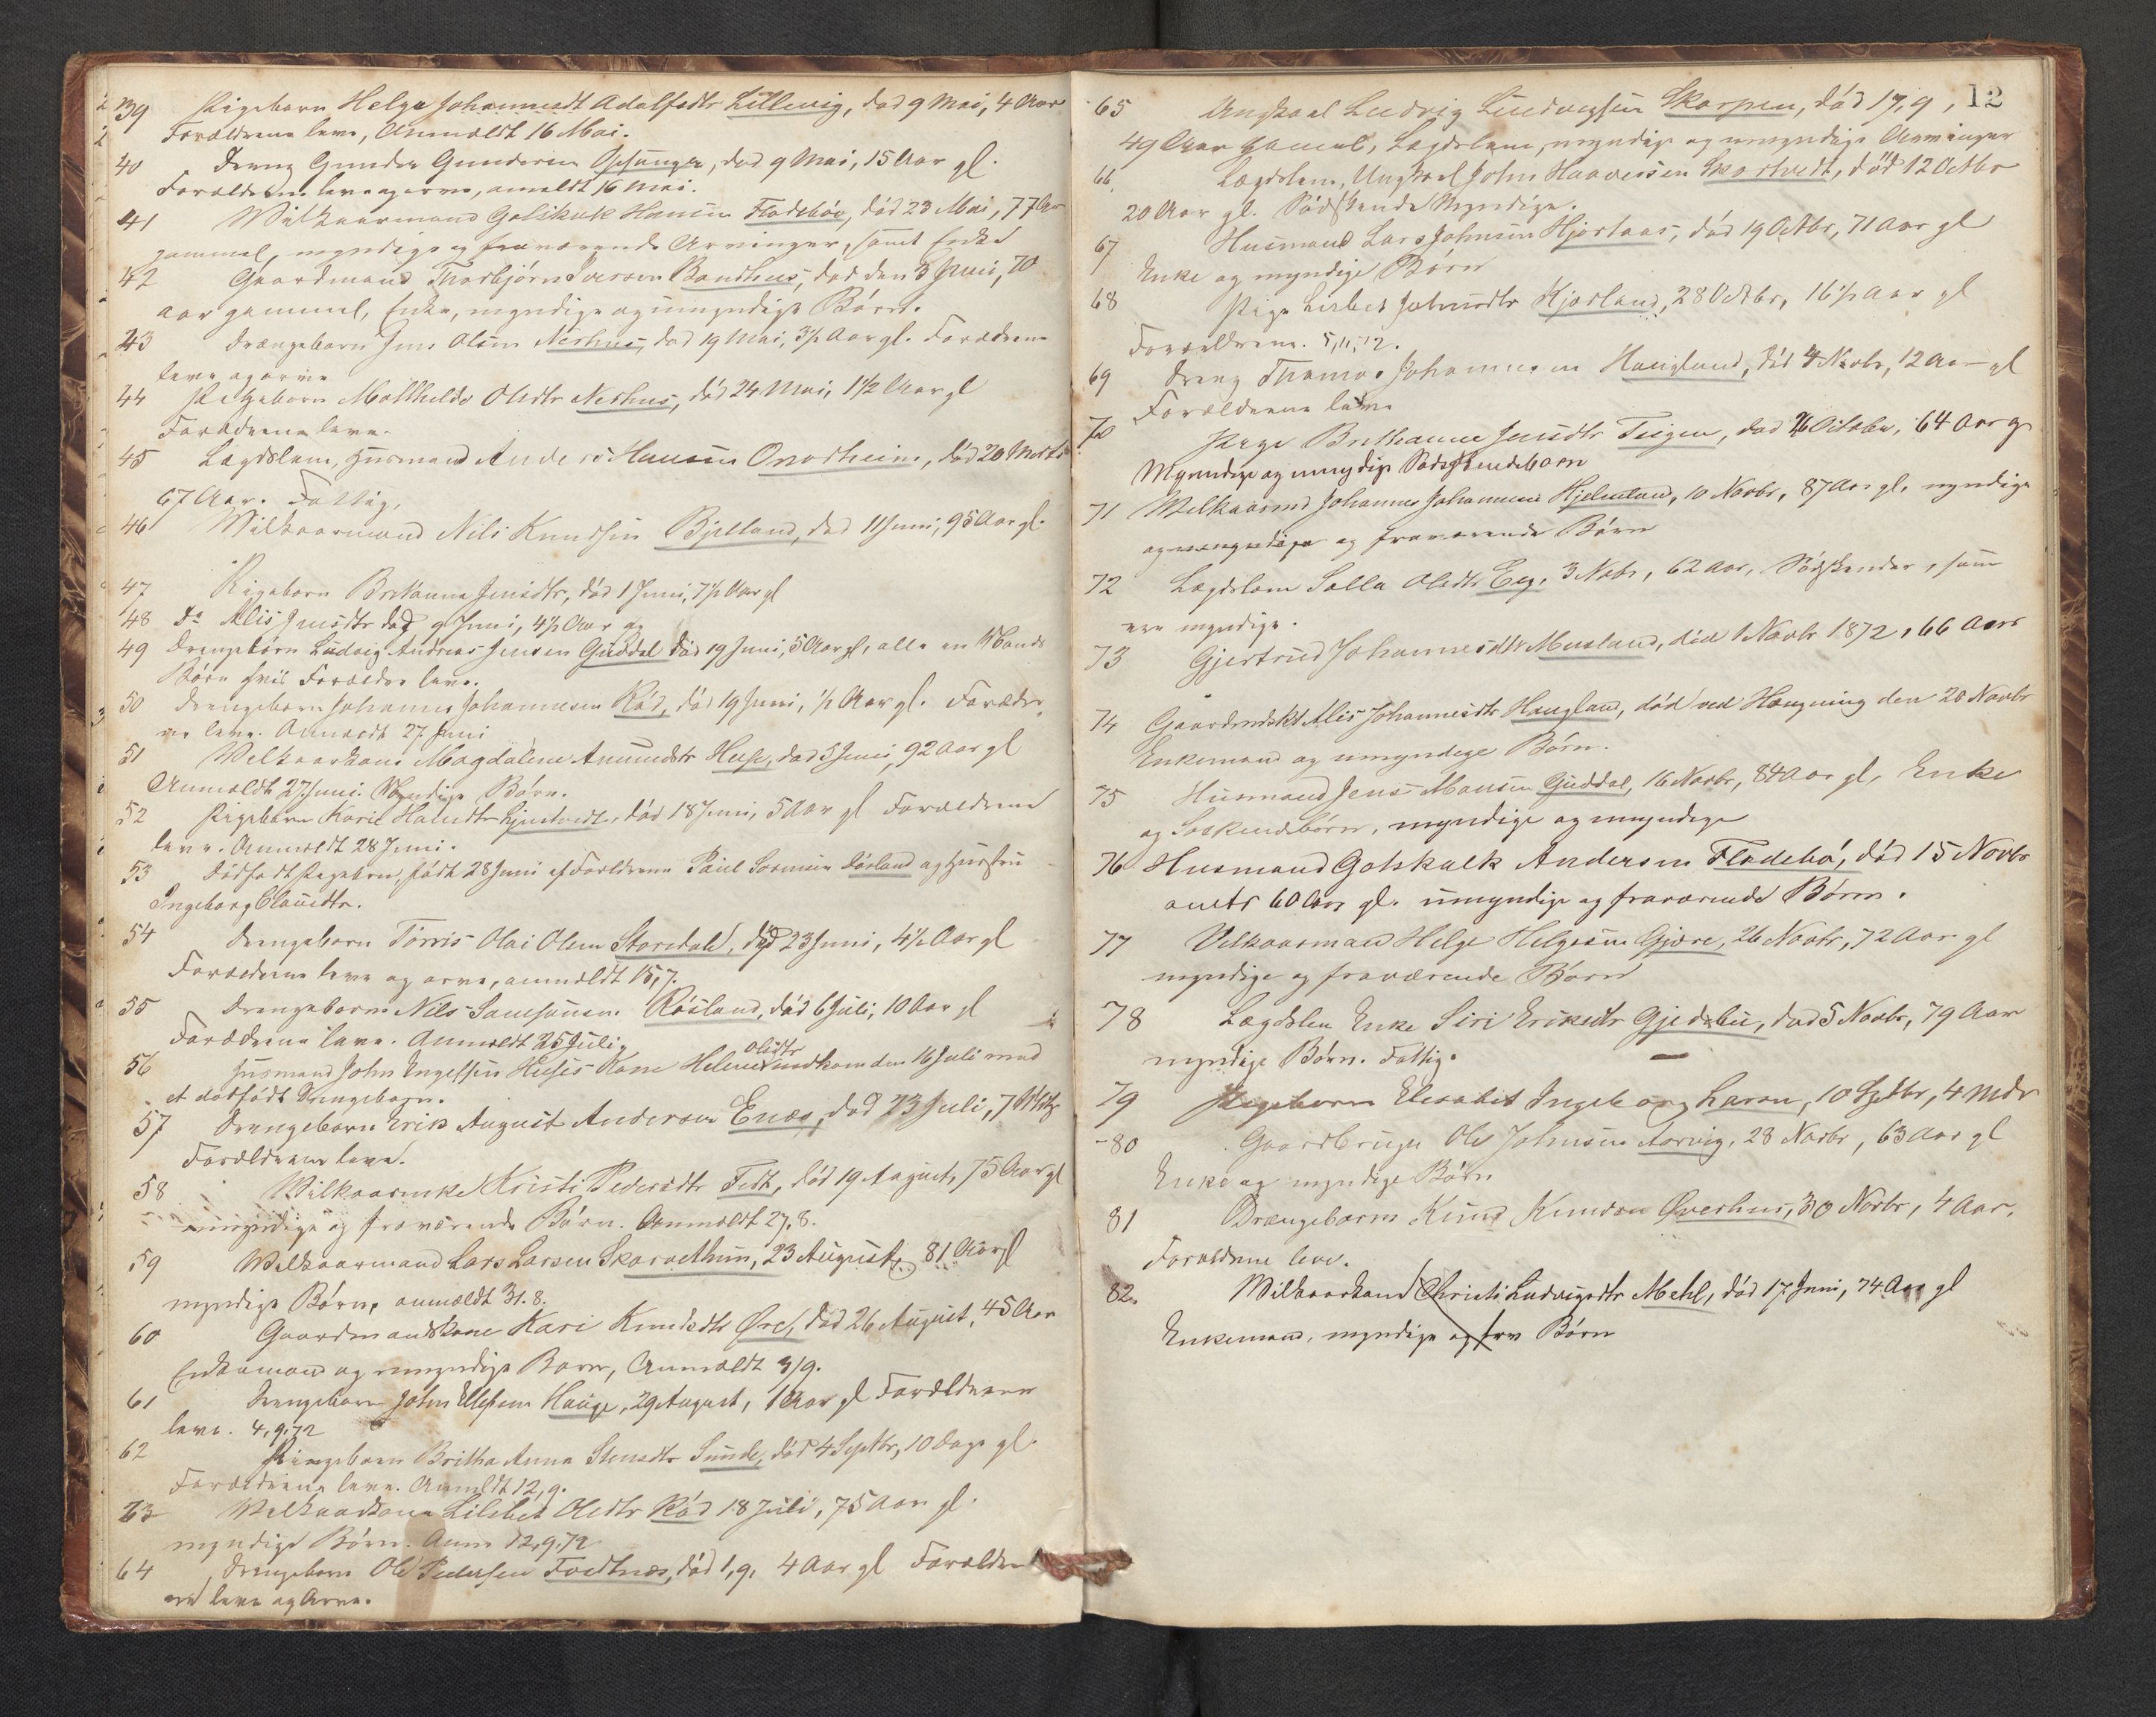 39 Pigebarn Helga Johannesdt Adolfsdtr Lillevig, død 9 Mai, 4 Aar
Forældrene leve, Anmeldt 16 Mai.
40 Dreng Gunder Gundersen Opsanger, død 9 Mai, 15 Aar gl.
Forældrene leve og arve, anmeldt 16 Mai.
41 Vilkaarmand Golskalk Hansen Flodebøe, død 23 Mai, 77 Aar
gammel, myndige og fraværende Arvinger, samt Enke
42 Gaardmand Thorbjørn Iversen Bondhus, død den 3 Juni, 70
aar gammel, Enke, myndige og umyndige Børn.
43 Drængebarn Jens Olsen Nerhus, død 19 Mai, 3½ Aar gl. Forældrene
leve og arve
44 Pigebarn Mallhilde Olsdtr Nerhus, død 24 Mai, 1½ Aar gl
Forældrene leve.
45 Lægdslem, Husmand Anders Hansen Omvikheim, død 20 Marts
67 Aar. Fattig.
46 Vilkaarmand Nils Knudsen Bjelland, død 11 Juni, 95 Aar gl.
47 Pigebarn Britanna Jensdtr, død 1 Juni, 7½ Aar gl
48 Do Alis Jensdtr død 9 Juni, 4½ Aar og
49 Drengebørn Ludvig Andreas Jensen Guddal død 19 Juni, 5 Aar gl, alle en Mands
Børn hvis Forældre leve.
50 Drengebarn Johannes Johannesen Rød, død 19 Juni, ½ Aar gl. Forældre
ne leve. Anmeldt 27 Juni
51 Velkaarkone Magdalena Amundsdtr Huse, død 5 Juni, 92 Aar gl
Anmeldt 27 Juni. Myndige Børn.
52 Pigebarn Kari Hansdtr, død 18 Juni, 5 Aar gl Forældrene
leve. Anmeldt 28 Juni.
53 Dødfødt Pigebarn, født 28 Juni af Forældrene Paul Dørland og Hustru
Ingeborg Clausdtr.
54 Drengebarn Tørris Olai Olsen Storedale, død 23 Juni, 4½ Aar gl
Forældrene leve og arve, anmeldt 15,7.
55 Drengebarn Nils Samsonsen Røsland, død 6 Juli, 10 Aar gl
Forældrene leve. Anmeldt 25 Juli.
56 Husmand John Engelsen Huses Kone Helene Olsdtr nedkom den 16 Juli med
et dødfødt Drengebarn.
57 Drengebarn Erik August Andersen Enæs, død 23 Juli, 7
Forældrene leve.
58 Vilkaarenke Kristi Pedersdtr Fedt, død 19 August, 75 Aar gl
myndige og fraværende Børn. Anmeldt 27.8.
59 Velkaarmand Lars Larsen Skarvethun, 23 August, 81 Aar gl
myndige Børn, anmeldt 31.8.
60 Gaardmandskone Kari Knudsdtr Øvre, død 26 August, 45 Aar
Enkemand og umyndige Børn, Anmeldt 3/9.
61 Drengebarn John Ellefsen Hauge, 29 August, 1 Aar gl Forældrene
leve. 4,9,72
62 Pigebarn Britha Anna Stensdtr Sunde, død 4 Septbr, 10 Dage gl.
Forældrene leve. Anmeldt 12,9.
63 Velkaarkone Lisbet Olsdtr Rød 18 Juli, 75 Aar gl.
myndige Børn. Anm 12.9.72
64 Drengebarn Ole Pedersen Fodtnæs, død 1,9, 4 Aar gl Forældre
ne leve og Arve.
12
65 Ungkarl Ludvig Ludvigsen Skorpen, død 17,9,
49 Aar gammel, Lægdslem, myndige og umyndige Arvinger
66. Lægdslem, Ungkarl John Haaversen Skortvedt, død 12 Octbr
20 Aar gl. Sødskende Myndige.
67 Husmand Lars Johnsen Hjortaas, død 19 Octbr, 71 Aar gl
Enke og myndige Børn
68 Pige Lisbet Johnsdtr Kjørland, 28 Octbr, 16½ Aar gl
Forældrene. 5,11,72.
69 Dreng Thomas Johannesen Haugland, død 4 Novbr, 12 Aar gl
Forældrene leve
70 Pige Brithanna Jensdtr Teigen, død 26 October, 64 Aar gl
Myndige og umyndige Sødskendebørn
71 Velkaarmd Johannes Johannesen Hjelmeland, 10 Novbr, 87 Aar gl, myndige
og umyndige og fraværende Børn
72 Lægdslem Salla Olsdtr Eeg, 3 Nobr, 62 Aar, Sødskender, som
ere myndige.
73 Gjertrud Johannesdtr Musland, død 1 Novbr 1872, 66 Aar
74 Gaardmdskt Alis Johannesdtr Haugland, død ved Hængning den 20 Novbr
Enkemand og umyndige Børn.
75 Husmand Jens Monsen Guddal, 16 Novbr, 84 Aar gl, Enke
og Søskendebørn, myndige og umyndige
76 Husmand Gotskalk Andersen Flodebø, død 15 Novbr
60 Aar gl. umyndige og fraværende Børn.
77 Velkaarmand Helge Helgesen Gjære, 26 Novbr, 72 Aar gl
myndige og fraværende Børn
78 Lægdslem Enke Siri Eriksdtr Gjedebu, død 5 Novbr, 79 Aar
myndige Børn. Fattig.
79 Pigebarn Elesabet Ingeborg Larsn, 10 Septbr, 4 Mdr
80 Gaardbruger Ole Johnsen Aarvig, 28 Novbr, 63 Aar gl
Enke og myndige Børn
81 Drængebarn Knud Knudsen Øverhus, 30 Novbr, 4 Aar.
Forældrene leve.
82. Vilkaarkone Christi Ludvigsdtr Mehl, død 17 Juni, 74 Aar gl
Enkemand, myndige og frv Børn